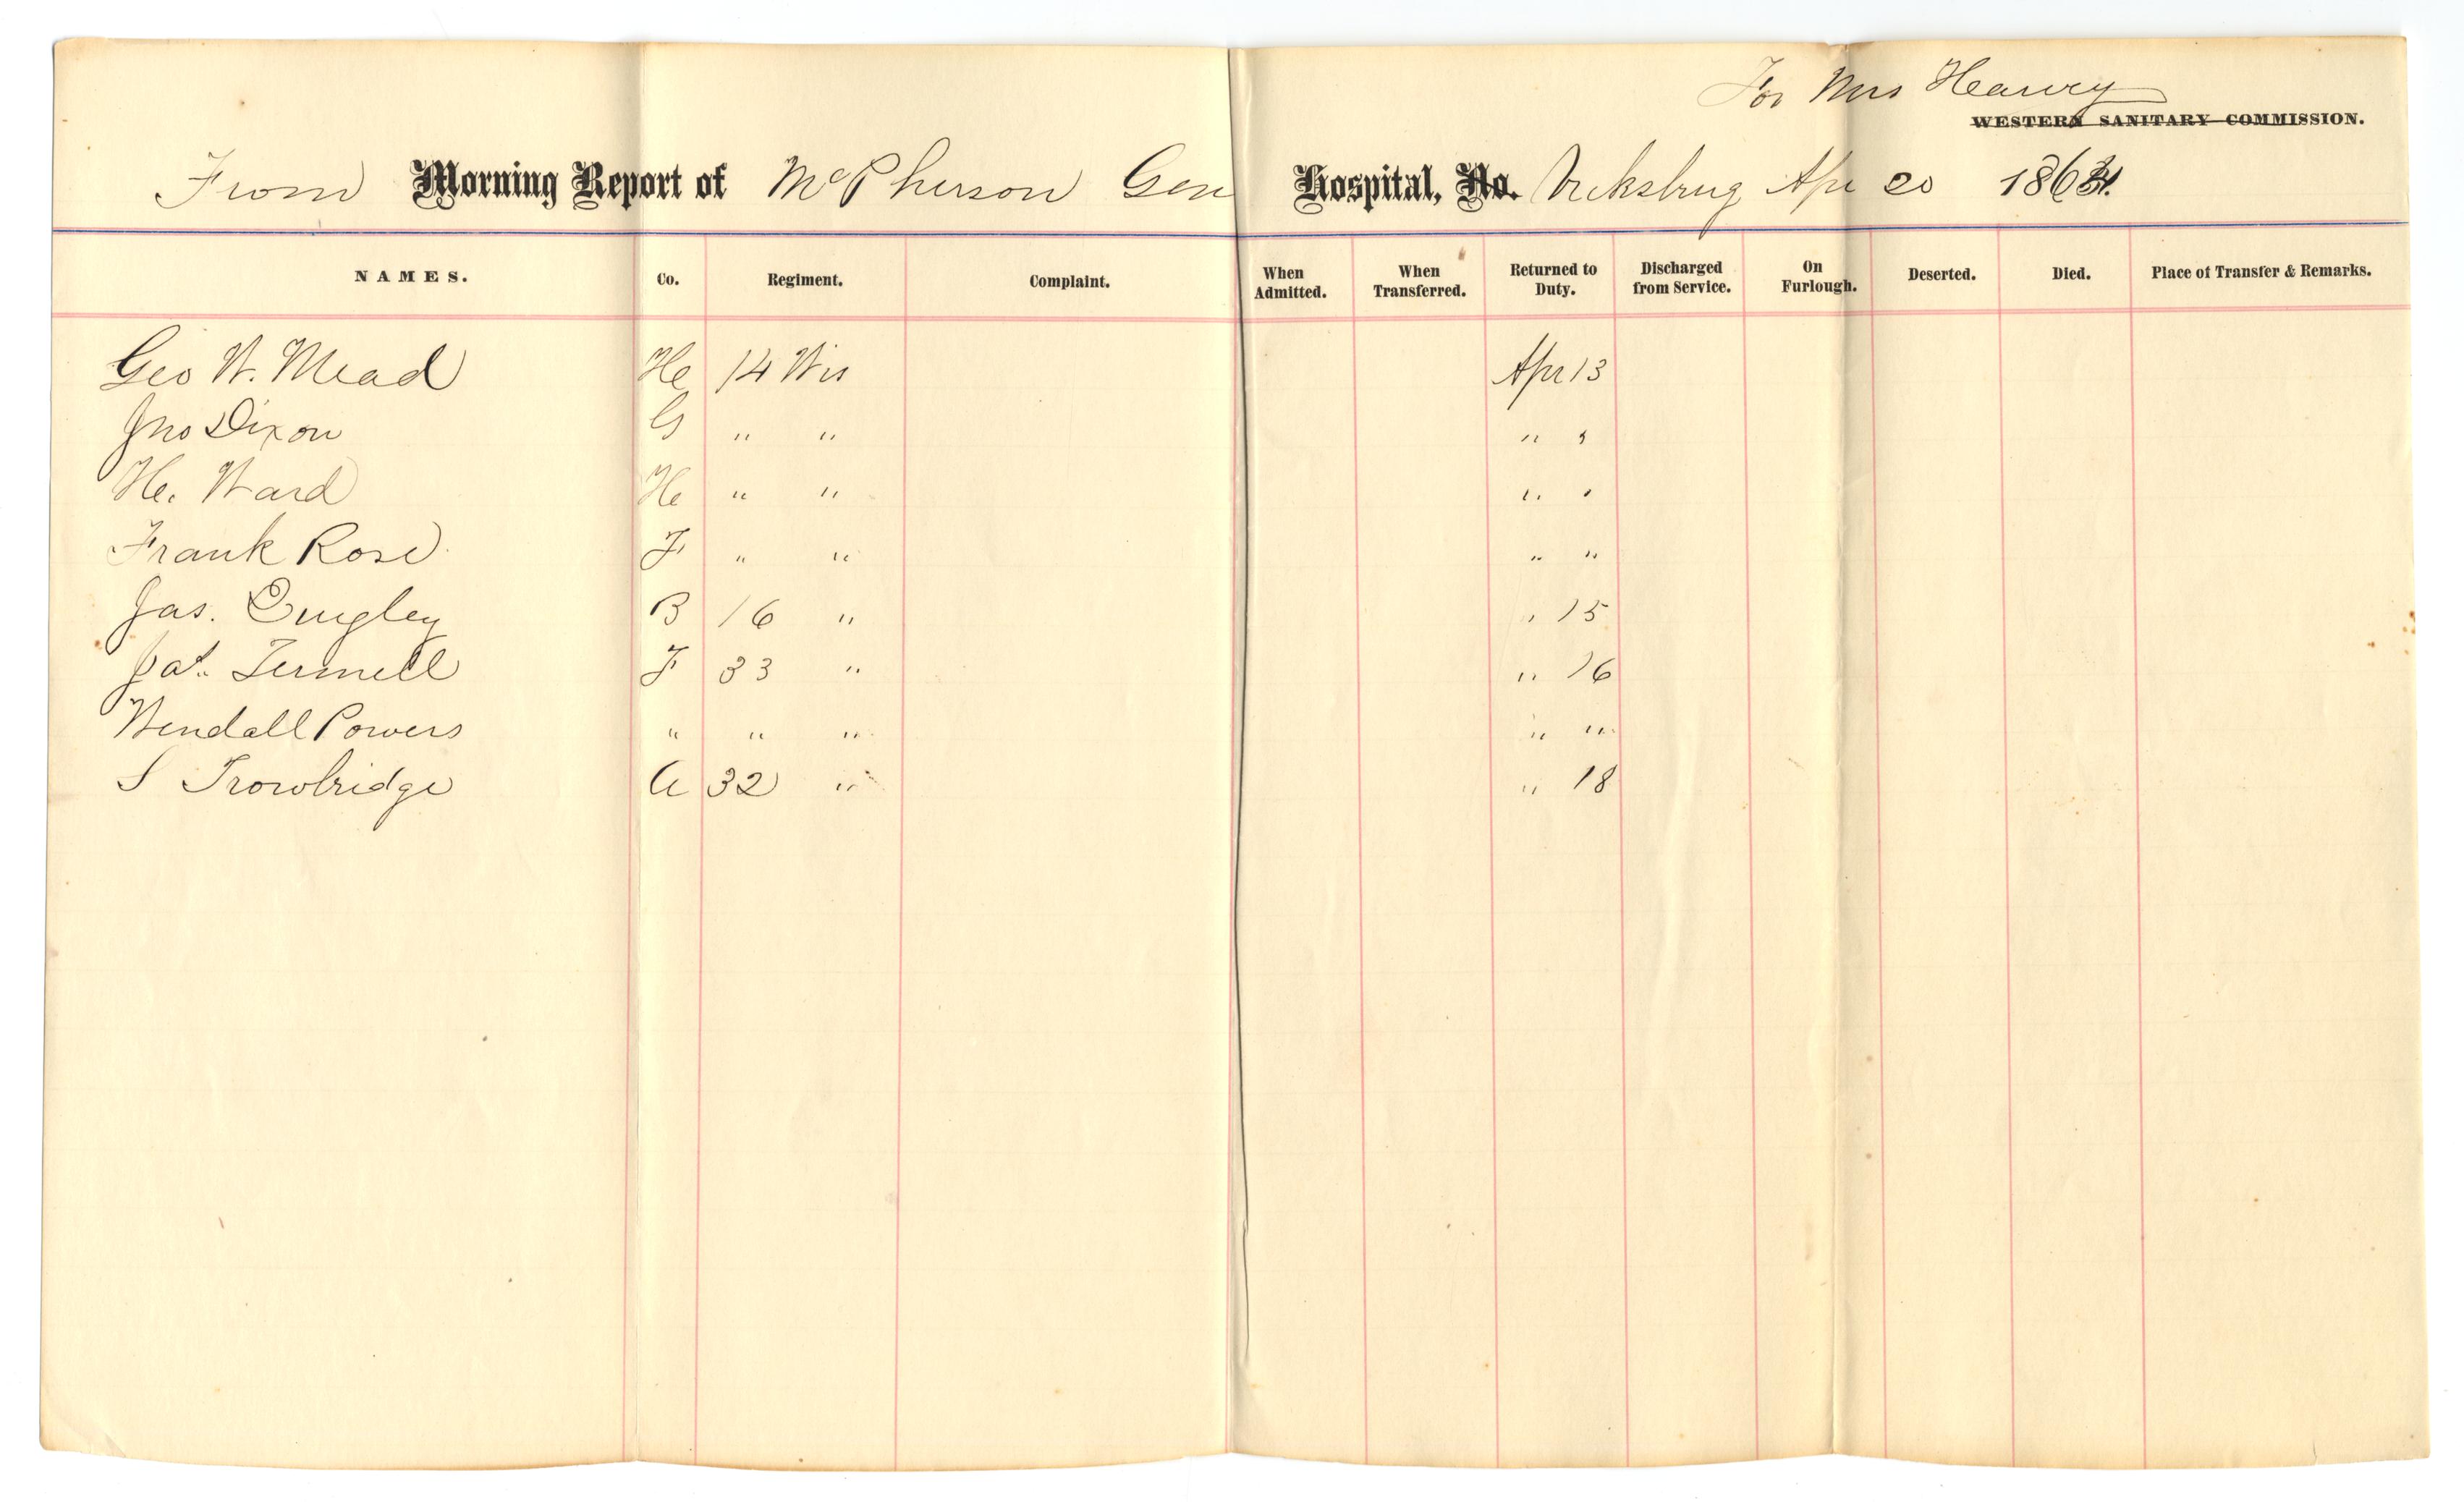 For Mrs Hearvey
WESTERN SANITARY COMMISSION.
From Morning Report of McPherson Gen Hospital, No. Vicksburg Apr 20 1864.
NAMES. Co. Regiment. Complaint. When Admitted. When Transferred. Returned to Duty. Discharged from Service. On Furlough. Deserted. Died. Place of Transfer & Remarks.
Geo W. Mead H 14 Wis Apr 13
Jno Dixon G " " " "
H. Ward H " " " "
Frank Rose F " " " "
Jas. Quigley B 16 " " 15
Pat. F 33 " " 16
Wendall Powers " " " " "
S Trowbridge A 32 " " 18